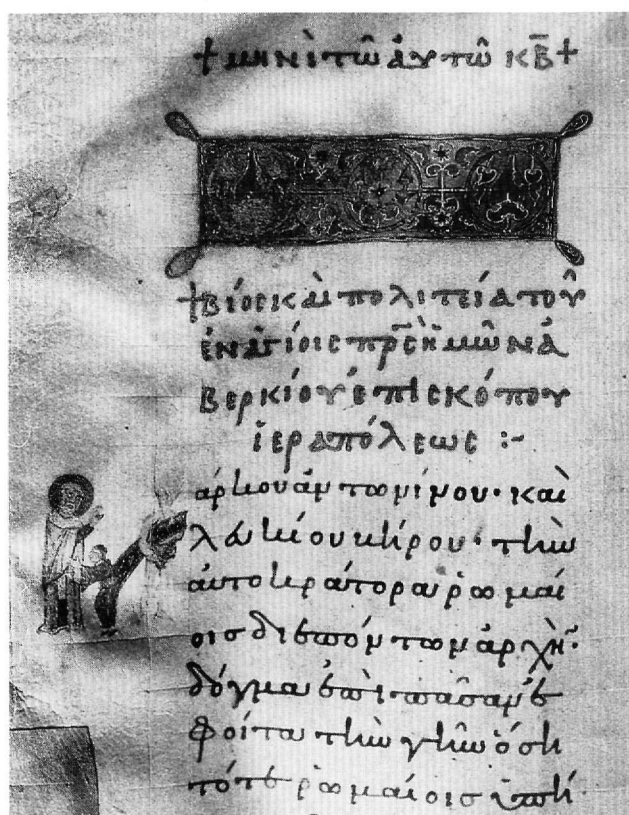 + μηνὶ τῶ ἀυτῶ κβ̅ +
+ βίος καὶ πολιτεία τοῦ
ἐν ἁγίοις πρ̅ς ἡμῶν ἀ
βερκίου ἐπισκόπου
ἱεραπόλεως :-
άρκου ἀντωνίνου· καὶ
λουκίου κήρου· τὴν
ἀυτοκράτορα ῥωμαί
οις διεπόντων ἀρχὴν·
δόγμα ἐπὶ πᾶσαν ἐ
φοίτα τὴν γῆν ὅση
τότε ῥωμαίοις ὑπή